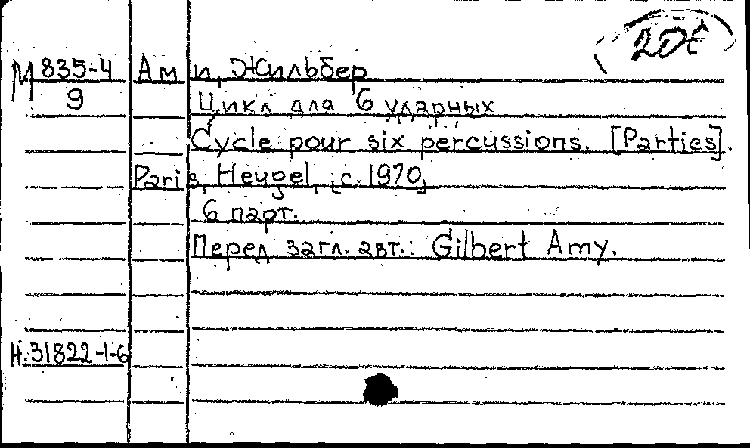 М 835-4 Ами, Жильбер
9 Цикл для 6 ударных
Cycle pour six percussions. [Parties].
Paris, Heugel, [c. 1970]
6 парт.
Перед загл. авт.: Gilbert Amy.
Н.31822-1-6